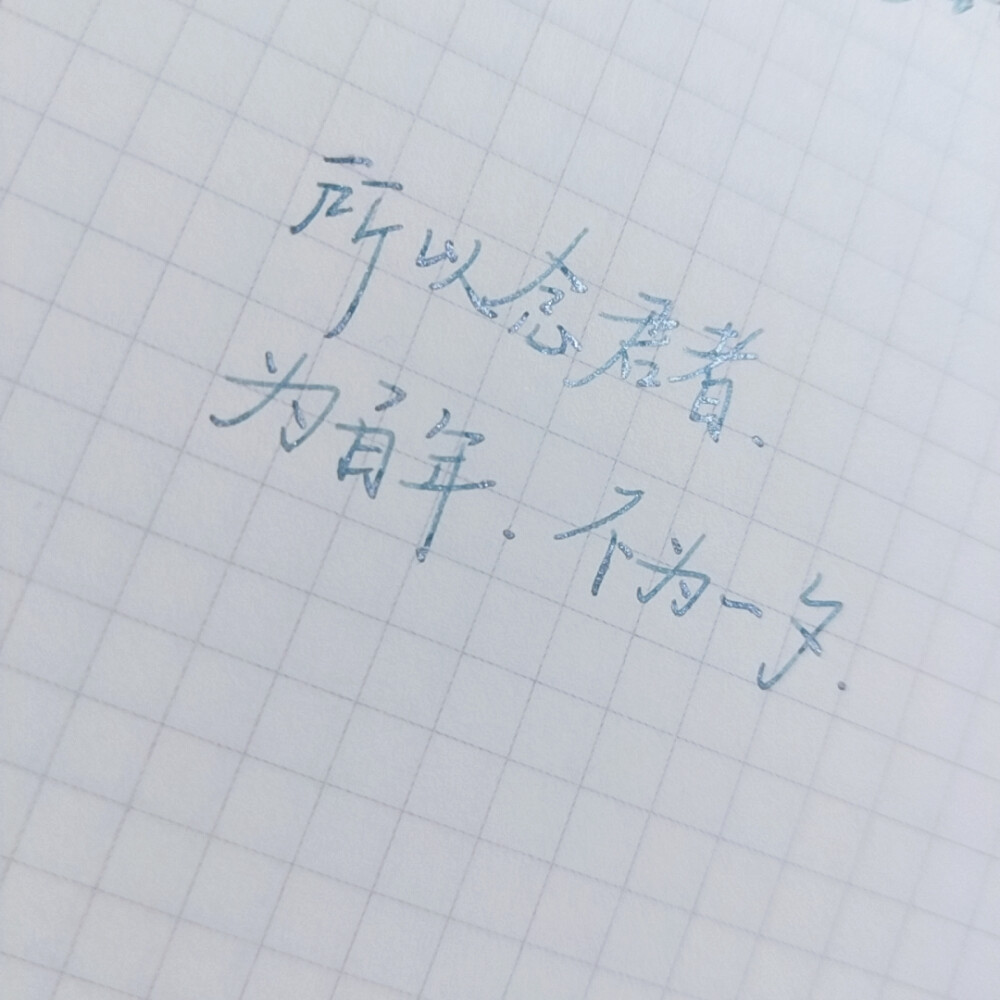 所以念君者.
为百年.不为一夕.